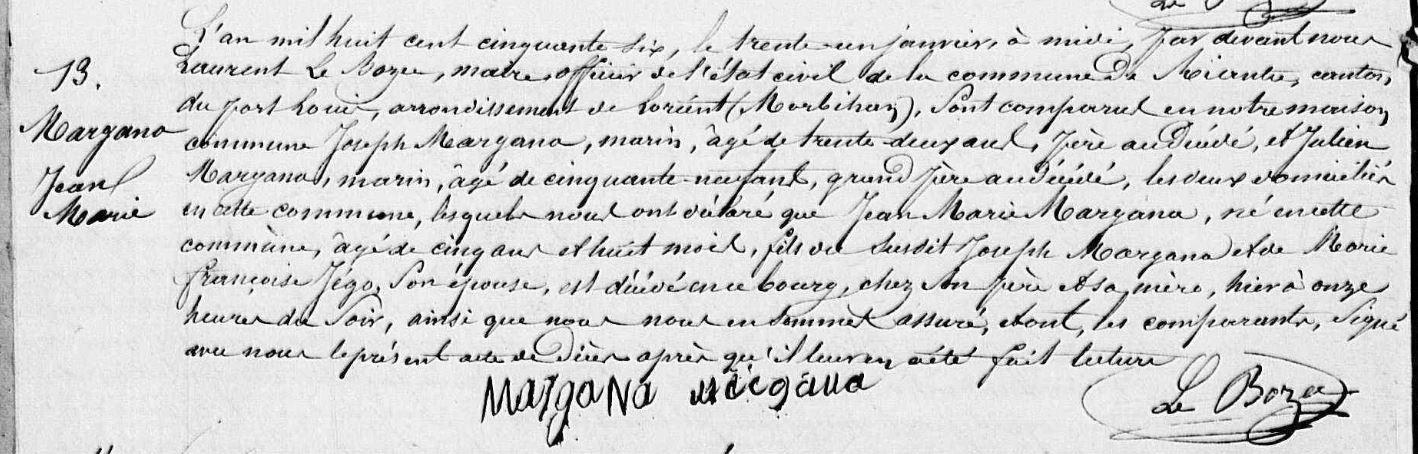 13.
Margano
Jean
Marie
L'an mil huit cent cinquante six, le trente un janvier, à midi, par devant nous
Laurent Le Bozec, maire, officier de l'état civil de la commune de Riantec, canton
du port Louis, arrondissement de Lorient (Morbihan), sont comparus en notre maison
commune Joseph Margana, marin, âgé de trente deux ans, père au Décédé, et Julien
Margana, marin, âgé de cinquante-neuf ans, grand père au décédé, les deux domiciliés
en cette commune, lesquels nous ont déclaré que Jean Marie Margana, né en cette
commune, âgé de cinq ans et huit mois, fils du susdit Joseph Margana et de Marie
françoise Jégo, son épouse, est décédé en ce bourg, chez son père et sa mère, hier à onze
heures du soir, ainsi que nous nous en sommes assuré, et ont, les comparants, signé
avec nous le présent acte de Décès après qu'il leur en a été fait lecture
Margana Margana Le Bozec